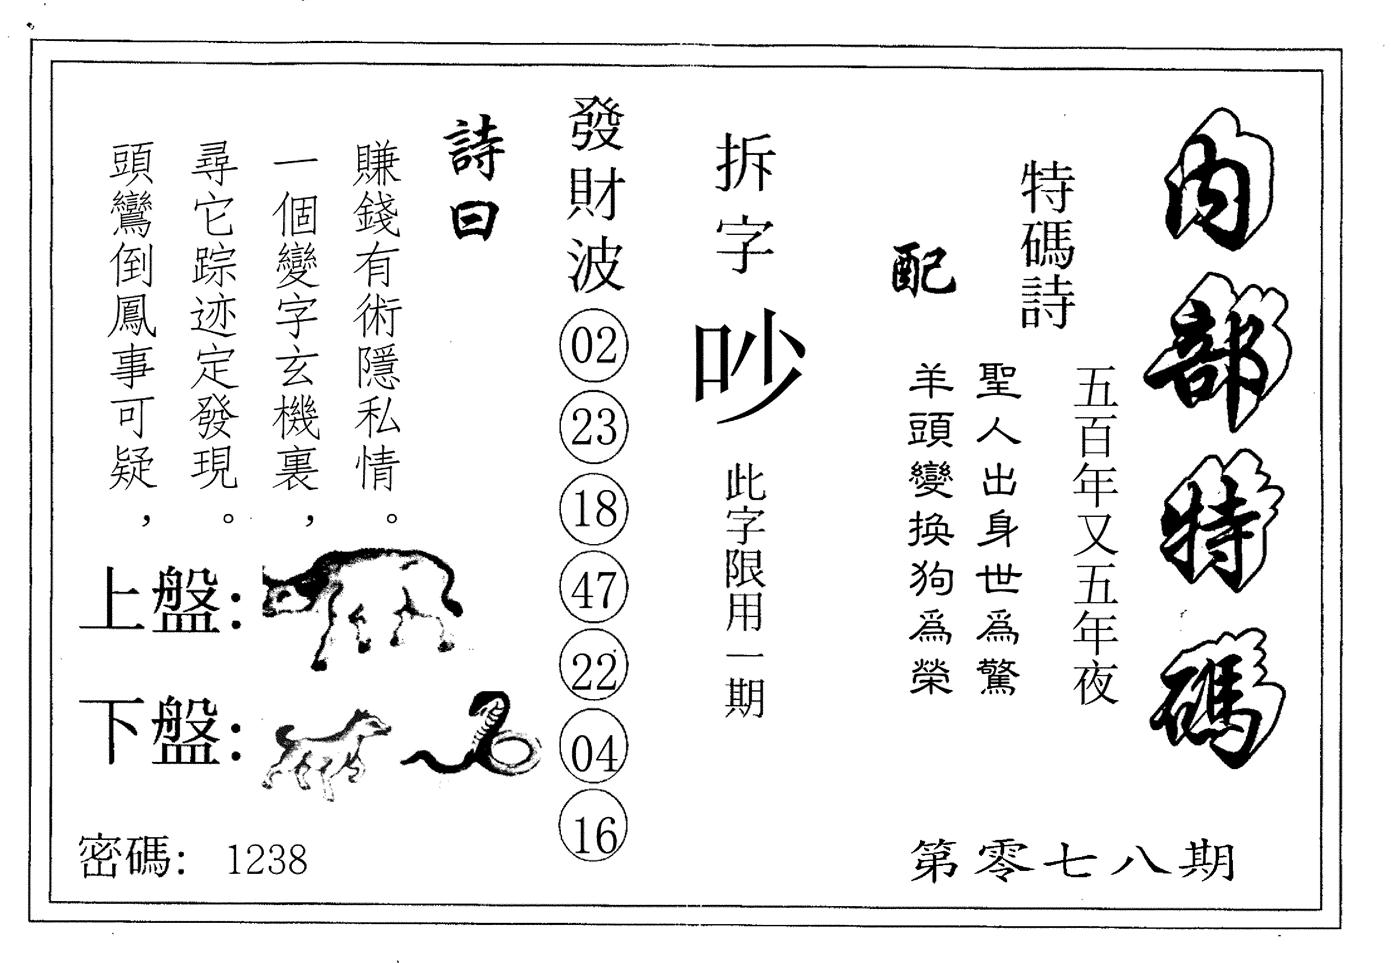 內部特碼
第零七八期
特碼詩
五百年又五年夜
配
聖人出身世為驚
羊頭變換狗為榮
拆字
吵
此字限用一期
發財波
02
23
18
47
22
04
16
詩曰
賺錢有術隱私情。
一個變字玄機裏，
尋它踪迹定發現。
頭鸞倒鳳事可疑，
上盤：
下盤：
密碼： 1238